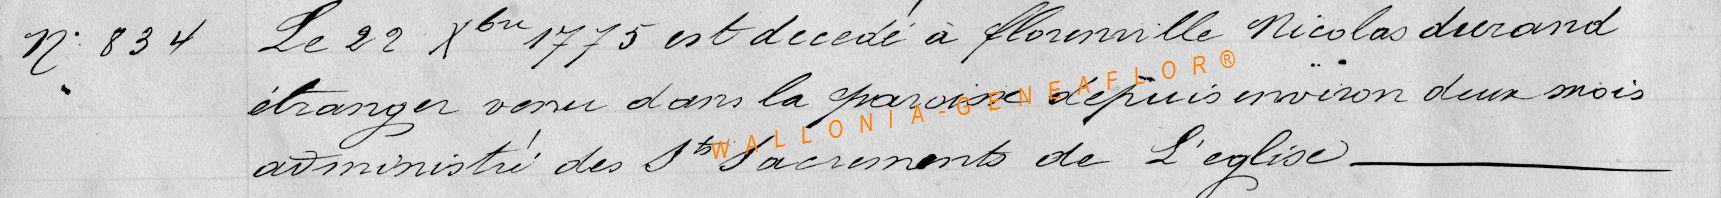 N° 834 Le 22 Xbre 1775 est decedé à florenville Nicolas durand
étranger venu dans la paroisse depuis environ deux mois
administré des Sts Sacrements de L'eglise
WALLONIA-GENEAFLOR®